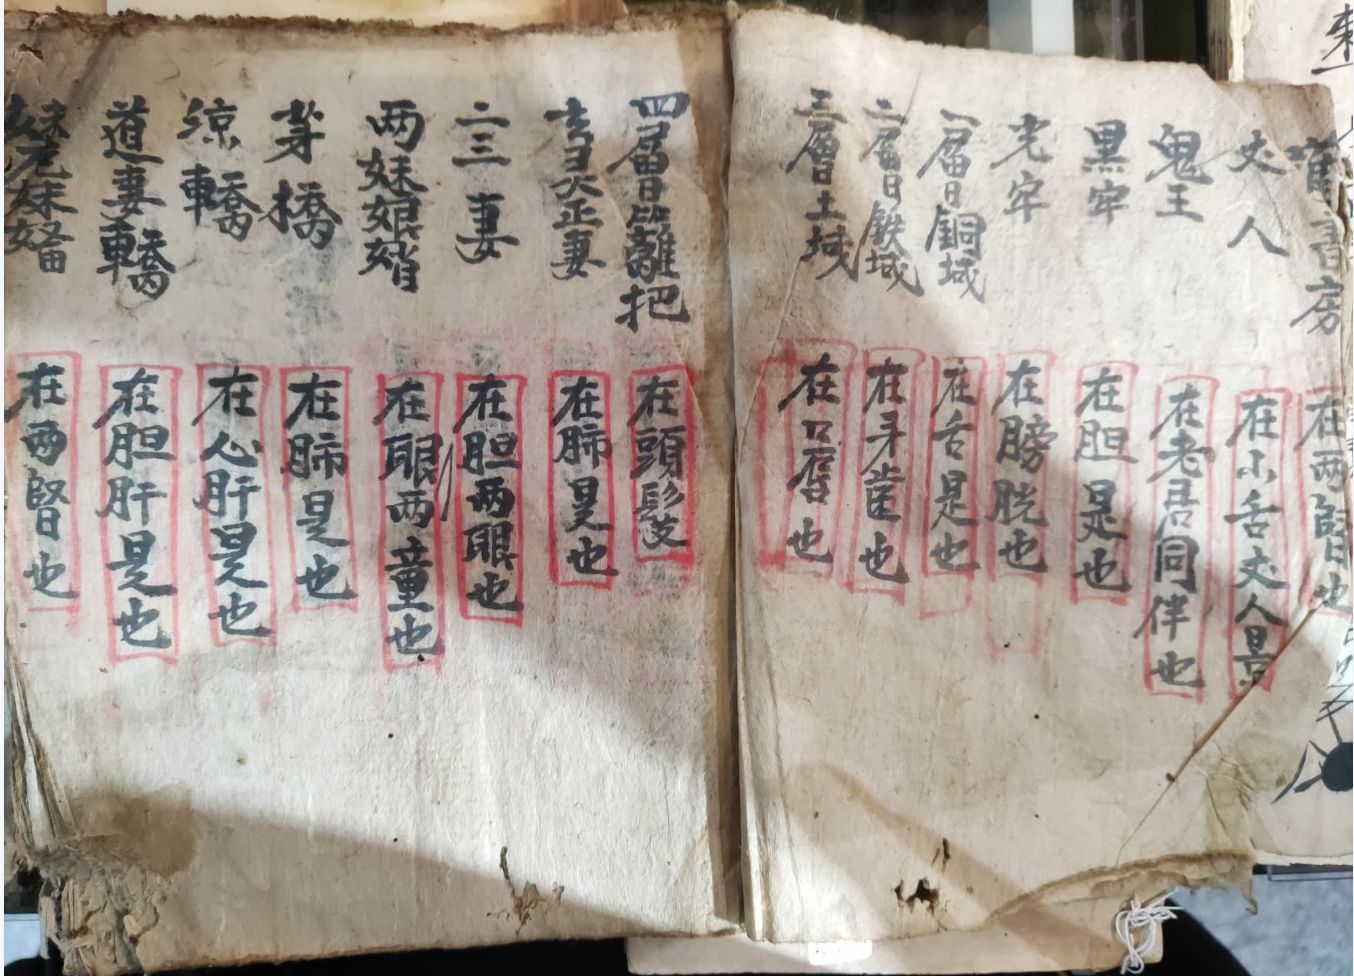 書房 在两腎也
丈人 在小舌丈人是
鬼王 在老君同伴也
黑牢 在胆是也
光牢 在膀胱也
一層銅城 在舌是也
二層鉄城 在牙歯也
三層土城 在口唇也
四層籬把 在頭髮
正妻 在肺是也
二三妻 在胆两眼也
两妹娘婿 在眼两童也
茅橋 在肺是也
凉轎 在心肝是也
道妻轎 在胆肝是也
在两腎也